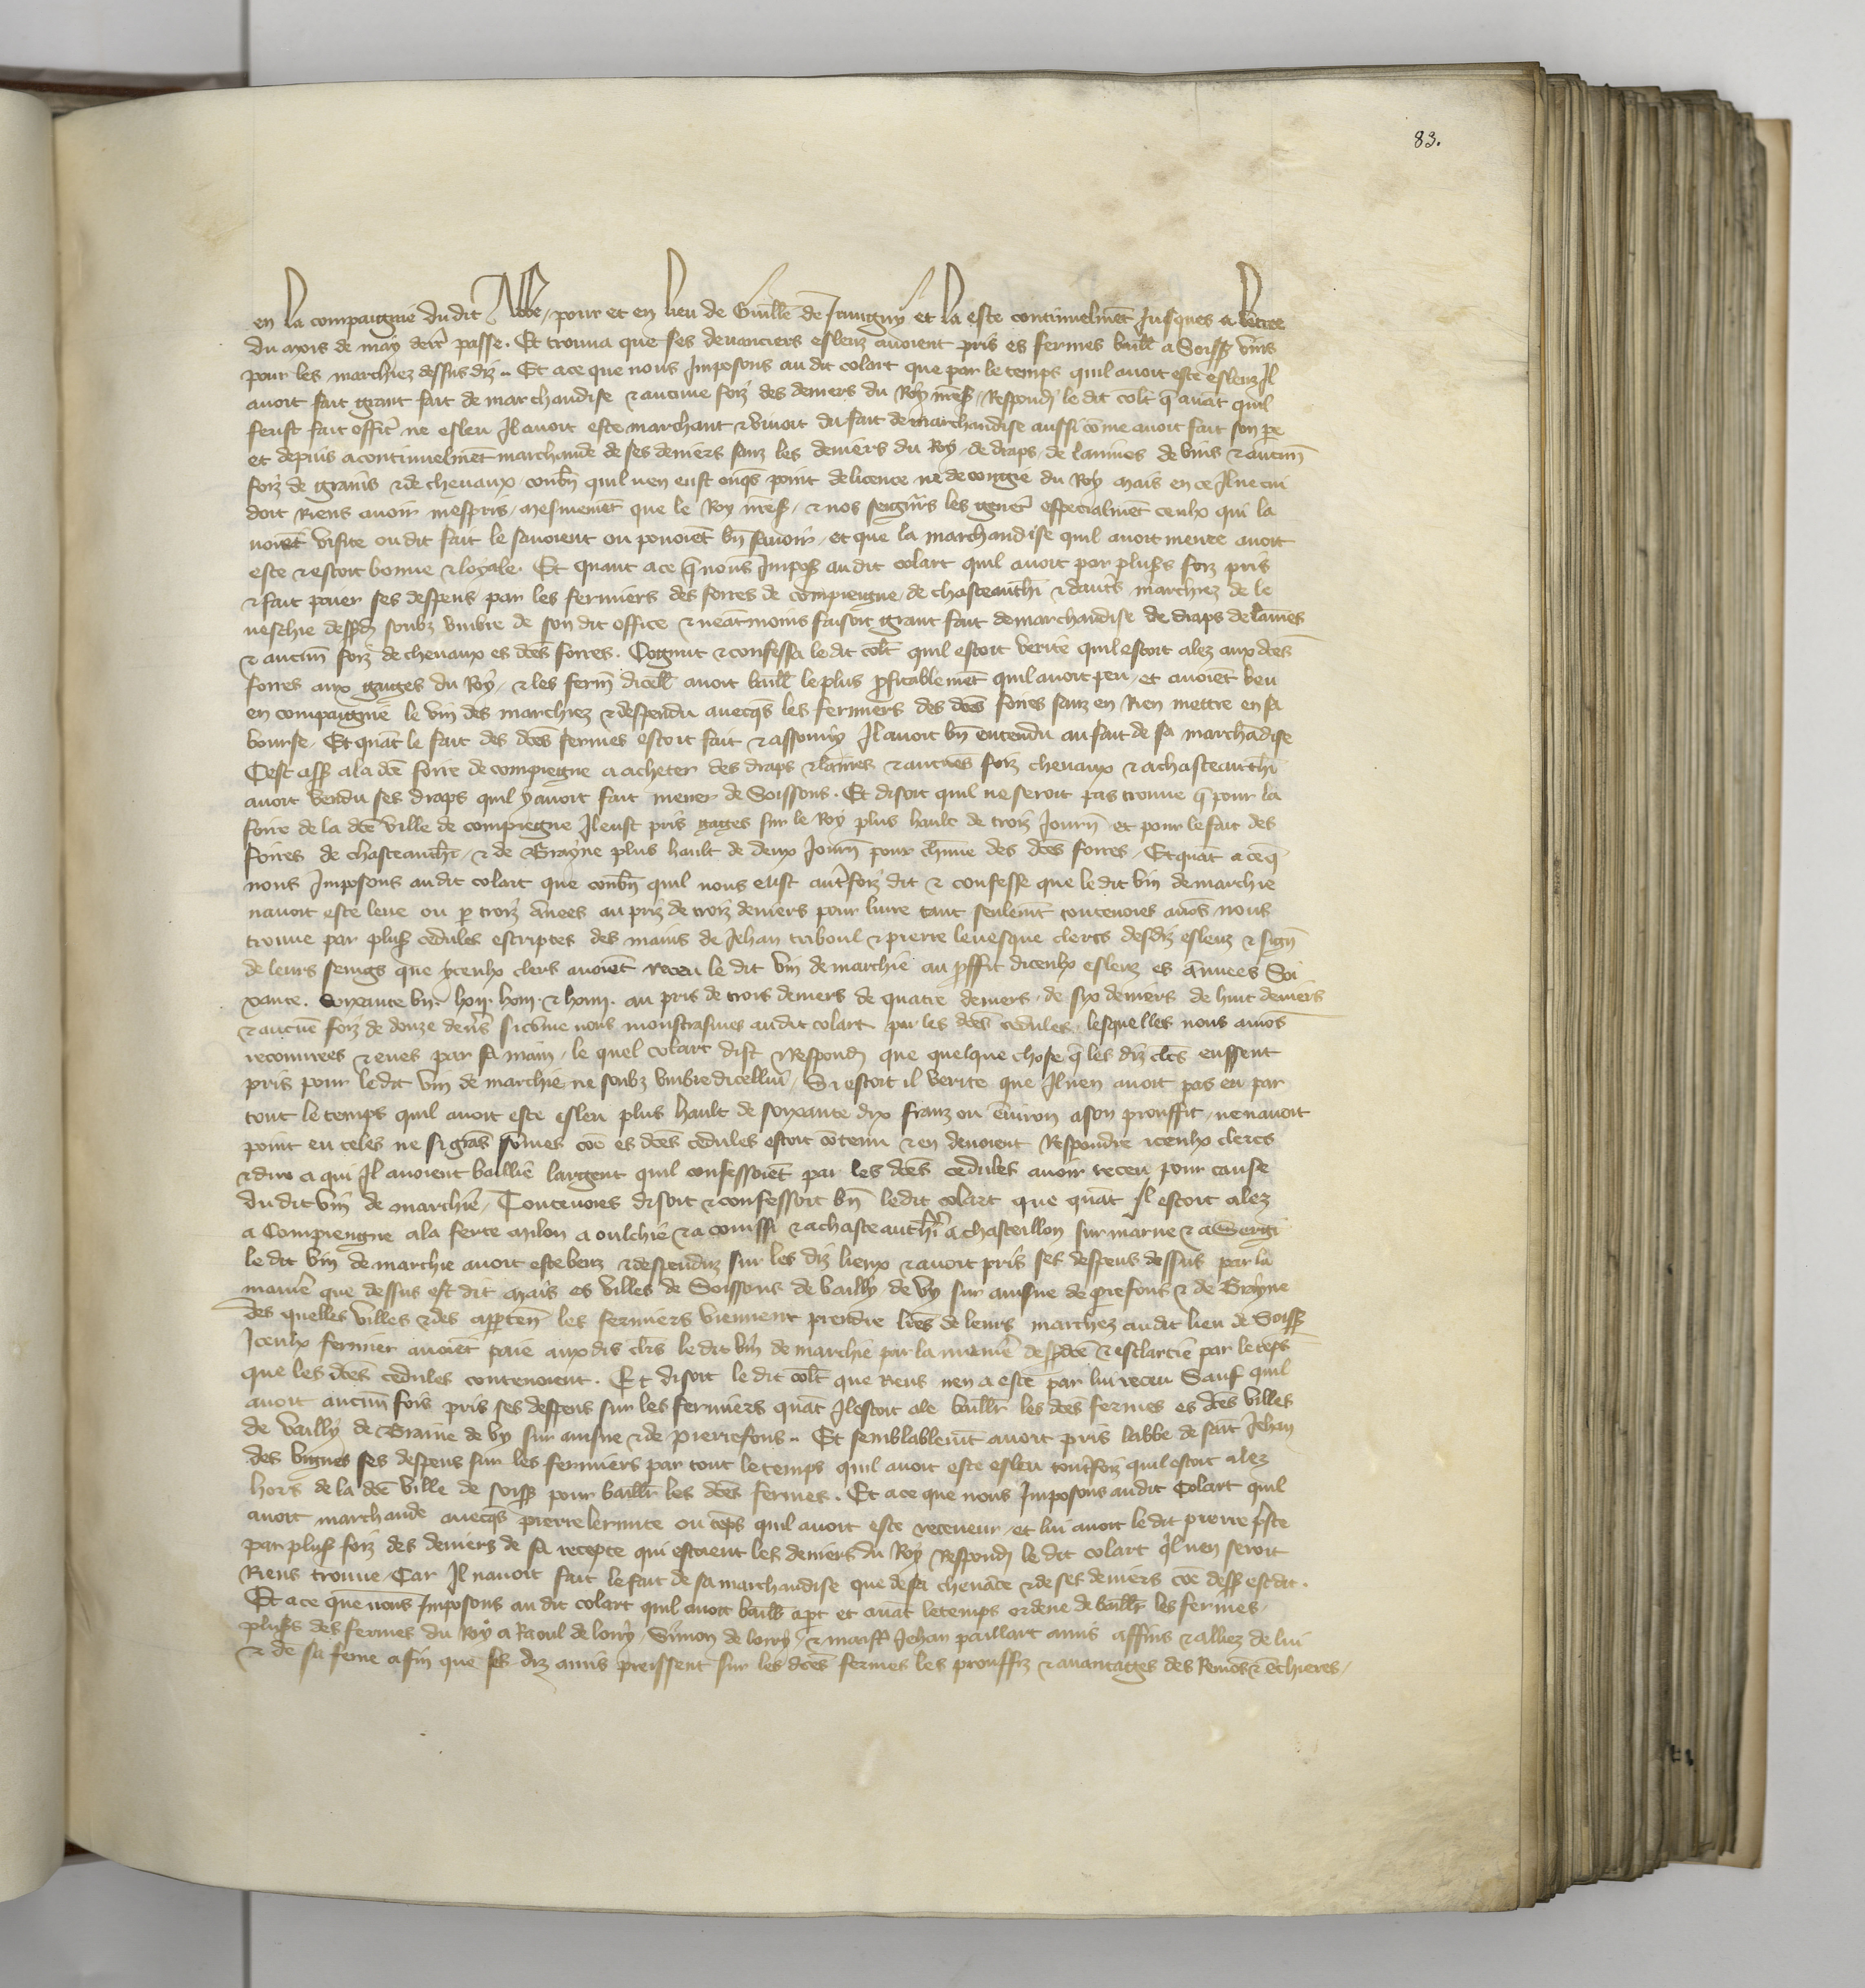 83.
en la compaignie dudit Abbe, pour et en lieu de Guille de Juuigny et la este continuelmēt Jusques a lētree
du mois de may derr̄ passe. Et trouua que ses deuanciers esleuz auoient pris es fermes baill a Soiss vins
pour les marchiez dessus diz.. Et ace que nous Imposons audit colart que par le temps quil auoit este esleuz Il
auoit fait grant fait de marchandise & aucune foiz des deniers du Roy n͞res, Respond le dit col̄t q̄ auāt quil
feust fait offic̄ ne esleu Il auoit este marchant & viuoit du fait demarchandise aussi cōme auoit fait son pe
et depuis acontinuelmēt marchande de ses deniers sanz les deniers du Roy, de draps, de lainnes de vins & aucun̄
foiz de grains & de cheuaux, conbn̄ quil nen eust onq̄s point delicence ne decongie du Roy mais en ce Ilne cui
doit Riens auoir mespris, mesmemēt que le Roy n͞res, & nos seign̄rs les gener̄ especialmēt ceulx qui la
uoiēt visite ou dit fait le sauoient ou pouoiēt bn̄ sauoir, et que la marchandise quil auoit menee auoit
este & estoit bonne & loyale. Et quant ace q̄ nous Impos̄ au dit colart quil auoit par plus̄s foiz pris
& fait paier ses despens par les fermiers des foires de compiengne, de chasteauth̄i & dautˢ marchiez de le
ueschie dessd̄ soubz vmbre de son dit office & neātmoins faisoit grant fait demarchandise de draps de laines
& aucun̄ foiz de cheuaux es d̄ces foires. Cognut & confessa ledit col̄t quil estoit verite quil estoit alez aux d̄ces
foires aux gaiges du Roy, & les ferm̄ dicell auoit baill leplus p̄fitablemēt quil auoit peu, et auoiēt beu
en compaignie le vin des marchiez & despendu auecq̄s les fermiers des d̄ces foires sanz en Rien mettre en sa
bourse, Et quāt le fait des d̄ces fermes estoit fait & assouuy Il auoit bn̄ entendu au fait de sa marchādise
Cest ass̄ ala d̄ce foire de compiegne a acheter des draps & laines & aucunes foiz cheuaux & achasteauth̄i
auoit vendu ses draps quil y auoit fait mener de Soissons. Et disoit quil ne seroit pas trouue q̄ pour la
foire de la d̄ce ville de compiegne Il eust pris gages sur le Roy plus hault de troiz Journ̄ et pour lefait des
foires de chasteauth̄i, & de Brayne plus hault de deux Journ̄ pour ch̄une des d̄ces foires, Et quāt a ceq̄
nous Imposons audit colart que conbn̄ quil nous eust aut̄foiz dit & confesse que le dit vin demarchie
nauoit este leue ou p̲ troiz ānees au priz de troiz deniers pour liure tant seulemēt toutenoies auōs nous
trouue par plus̄ cedules escriptes des mains de Jehan triboul & pierre leuesque clercs desdiz esleuz & sign̄
de leurs seings que yceulx clers auoiēt receu le dit vin demarchie au p̄ffit diceulx esleuz es ānnees Soi
xante. Soixante vn. lxij. lxiij. & lxiiij. au pris de trois deniers de quatre deniers, de six deniers de huit deniers
& aucūe foiz de douze den̄rs sicōme nous monstrasmes audit colart par les d̄ces cedules, lesquelles nous auōs
recouurees & eues par sa main, le quel colart dist & Respond que quelque chose q̄ les diz cl̄cs eussent
pris pour ledit vin de marchie ne soubz vmbre dicellui, Si estoit il verite que Ilnen auoit pas eu par
tout le temps quil auoit este esleu plus hault de soixante dix franz ou ēuiron ason prouffit, nenauoit
point eu teles ne si grās sōmes cōe es d̄ces cedules estoit cōtenu & en deuoient Respondre iceulx clercs
& dire a qui Il auoient baillie largent quil confessoiēt par les d̄ces cedules auoir receu pour cause
dudit vin de marchie, Toutenoies disoit & confessoit bn̄ ledit colart que quāt Il estoit alez
a Compiengne ala ferte milon a oulchie & a couissi & achasteauth̄i a chasteillon sur marne & a Sergi
le dit vin de marchie auoit este beuz & despenduz sur les diz lieux & auoit pris ses despens dessus par la
manie͞r que dessus est dit mais es villes de Soissons de vailly de vy sur aisne de pierefons & de Brayne
des quelles villes & des apparten̄ les fermiers viennent prendre l͞res de leurs marchez audit lieu de Soiss
Iceulx fermier auoiēt paie aux dis cl̄cs le dit vin de marchie par la manie͞r dessd̄ce & esclarcie par letēps
que les d̄ces cedules contenoient. Et disoit le dit col̄t que riens nen a este par lui receu Sauf quil
auoit aucun̄ fois pris ses despens sur les fermiers quāt Il estoit ale baillr̄ les d̄ces fermes es d̄ces villes
de vailly de Braine de vy sur aisne & de pierrefons.. Et semblablemt̄ auoit pris labbe de saīt Jehan
des vignes ses despens sur les fermiers par tout letemps quil auoit este esleu toutefoiz quil estoit alez
hors de la d̄ce ville de soiss pour baillr̄ les d̄ces fermes. Et ace que nous Imposons audit Colart quil
auoit marchande auecq̄s pierre lermite ou tēps quil auoit este receueur, et lui auoit le dit pierre p̄ste
par plus̄ foiz des deniers de sa recepte qui estoient les deniers du Roy Respond le dit colart q̄l nen seroit
Riens trouue, Car Il nauoit fait lefait de sa marchandise que de sa cheuāce & de ses deniers cōe dess̄ est dit.
Et ace que nous Imposons au dit colart quil auoit baill ap̄t et auāt letemps ordene de baillr̄ les fermes,
plus̄s des fermes du Roy a Raoul de lorry, Simon de lorry, & maist̄ Jehan paillart amis affins & alliez de lui
& de sa feme afin que ses diz amis preissent sur les d̄ces fermes les prouffiz & auantages des Remōs̄ & ēchieres,